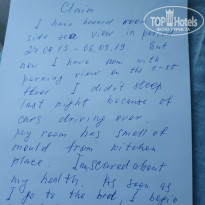 Claim
TOP HOTELS
I have booked room
side sea view in
27.08.19 - 06.09.19. But
now I have room with
parking view on the
floor. I didn't sleep
last night because of
cars driving over.
my room has smell of
mould from kitchen
place. I'm scared about
my health. As soon as
I go to the bed, I begin